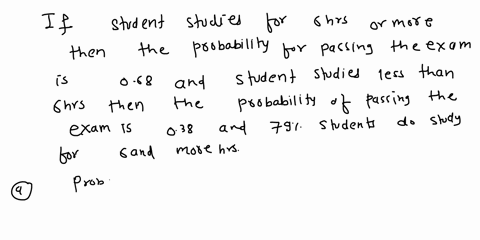 If student studies for 6 hrs or more
then the probability for passing the exam
is 0.68 and student studies less than
6hrs then the probability of passing the
exam is 0.38 and 79% students do study
for 6 and more hrs.
(a) Prob.